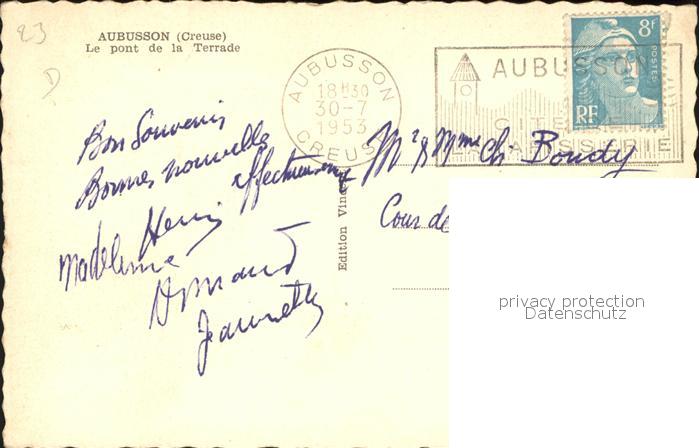 23
D
AUBUSSON (Creuse)
Le pont de la Terrade
AUBUSSON
18H30
30-7
1953
CREUSE
AUBUSSON
CITE
TAPISSERIE
8F
POSTES
RF
Bon Souvenir
Bonnes nouvelles
affectueusement
Henri
Madeleine
Armand
Jeannette
Edition Vin
Mr & Mme Ch. Boudy
Cour de
privacy protection
Datenschutz